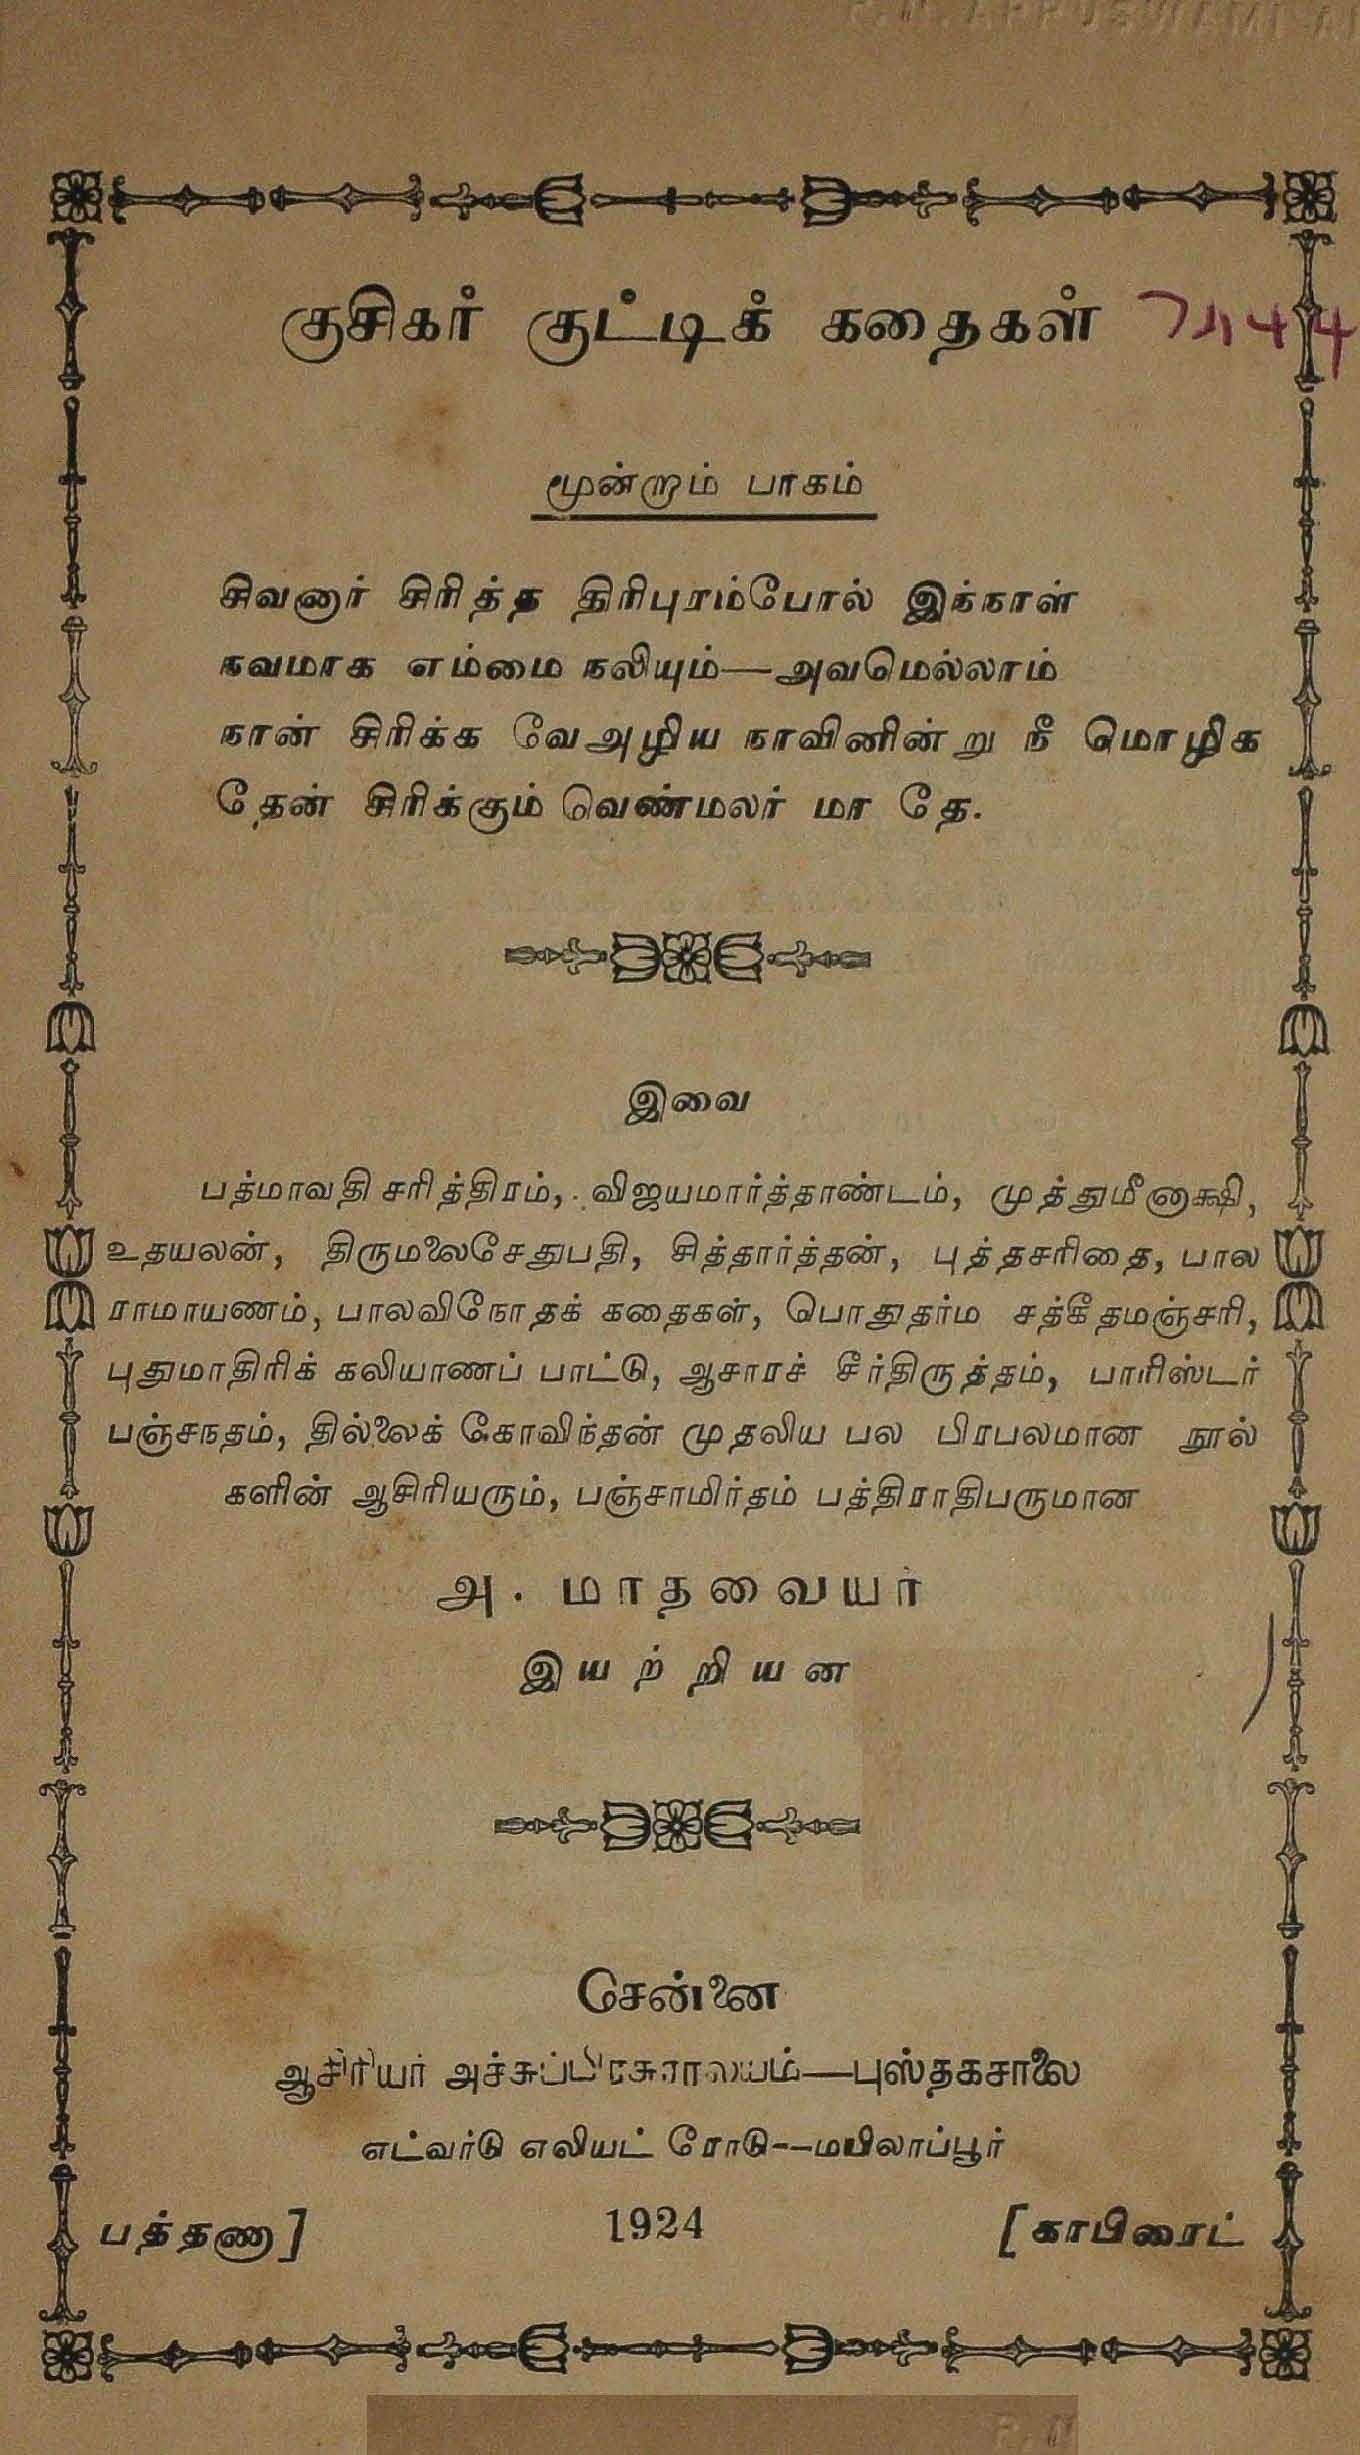 குசிகர் குட்டிக் கதைகள்
மூன்றாம் பாகம்
சிவனார் சிரித்த திரிபுரம்போல் இந்நாள்
நவமாக எம்மை நலியும்—அவமெல்லாம்
நான் சிரிக்க வேஅழிய நாவினின்று நீ மொழிக
தேன் சிரிக்கும் வெண்மலர் மா தே.
இவை
பத்மாவதி சரித்திரம், விஜயமார்த்தாண்டம், முத்துமீனாக்ஷி,
உதயலன், திருமலைசேதுபதி, சித்தார்த்தன், புத்தசரிதை, பால
ராமாயணம், பாலவிநோதக் கதைகள், பொதுதர்ம சங்கீதமஞ்சரி,
புதுமாதிரிக் கலியாணப் பாட்டு, ஆசாரச் சீர்திருத்தம், பாரிஸ்டர்
பஞ்சநதம், தில்லைக் கோவிந்தன் முதலிய பல பிரபலமான நூல்
களின் ஆசிரியரும், பஞ்சாமிர்தம் பத்திராதிபருமான
அ. மாதவையர்
இயற்றியன
சென்னை
ஆசிரியர் அச்சுப்பிரசுராலயம்—புஸ்தகசாலை
எட்வர்டு எலியட் ரோடு--மயிலாப்பூர்
பத்தணா] 1924 [காபிரைட்